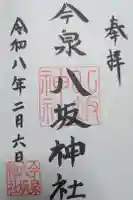 奉拝
今泉八坂神社
令和八年二月六日